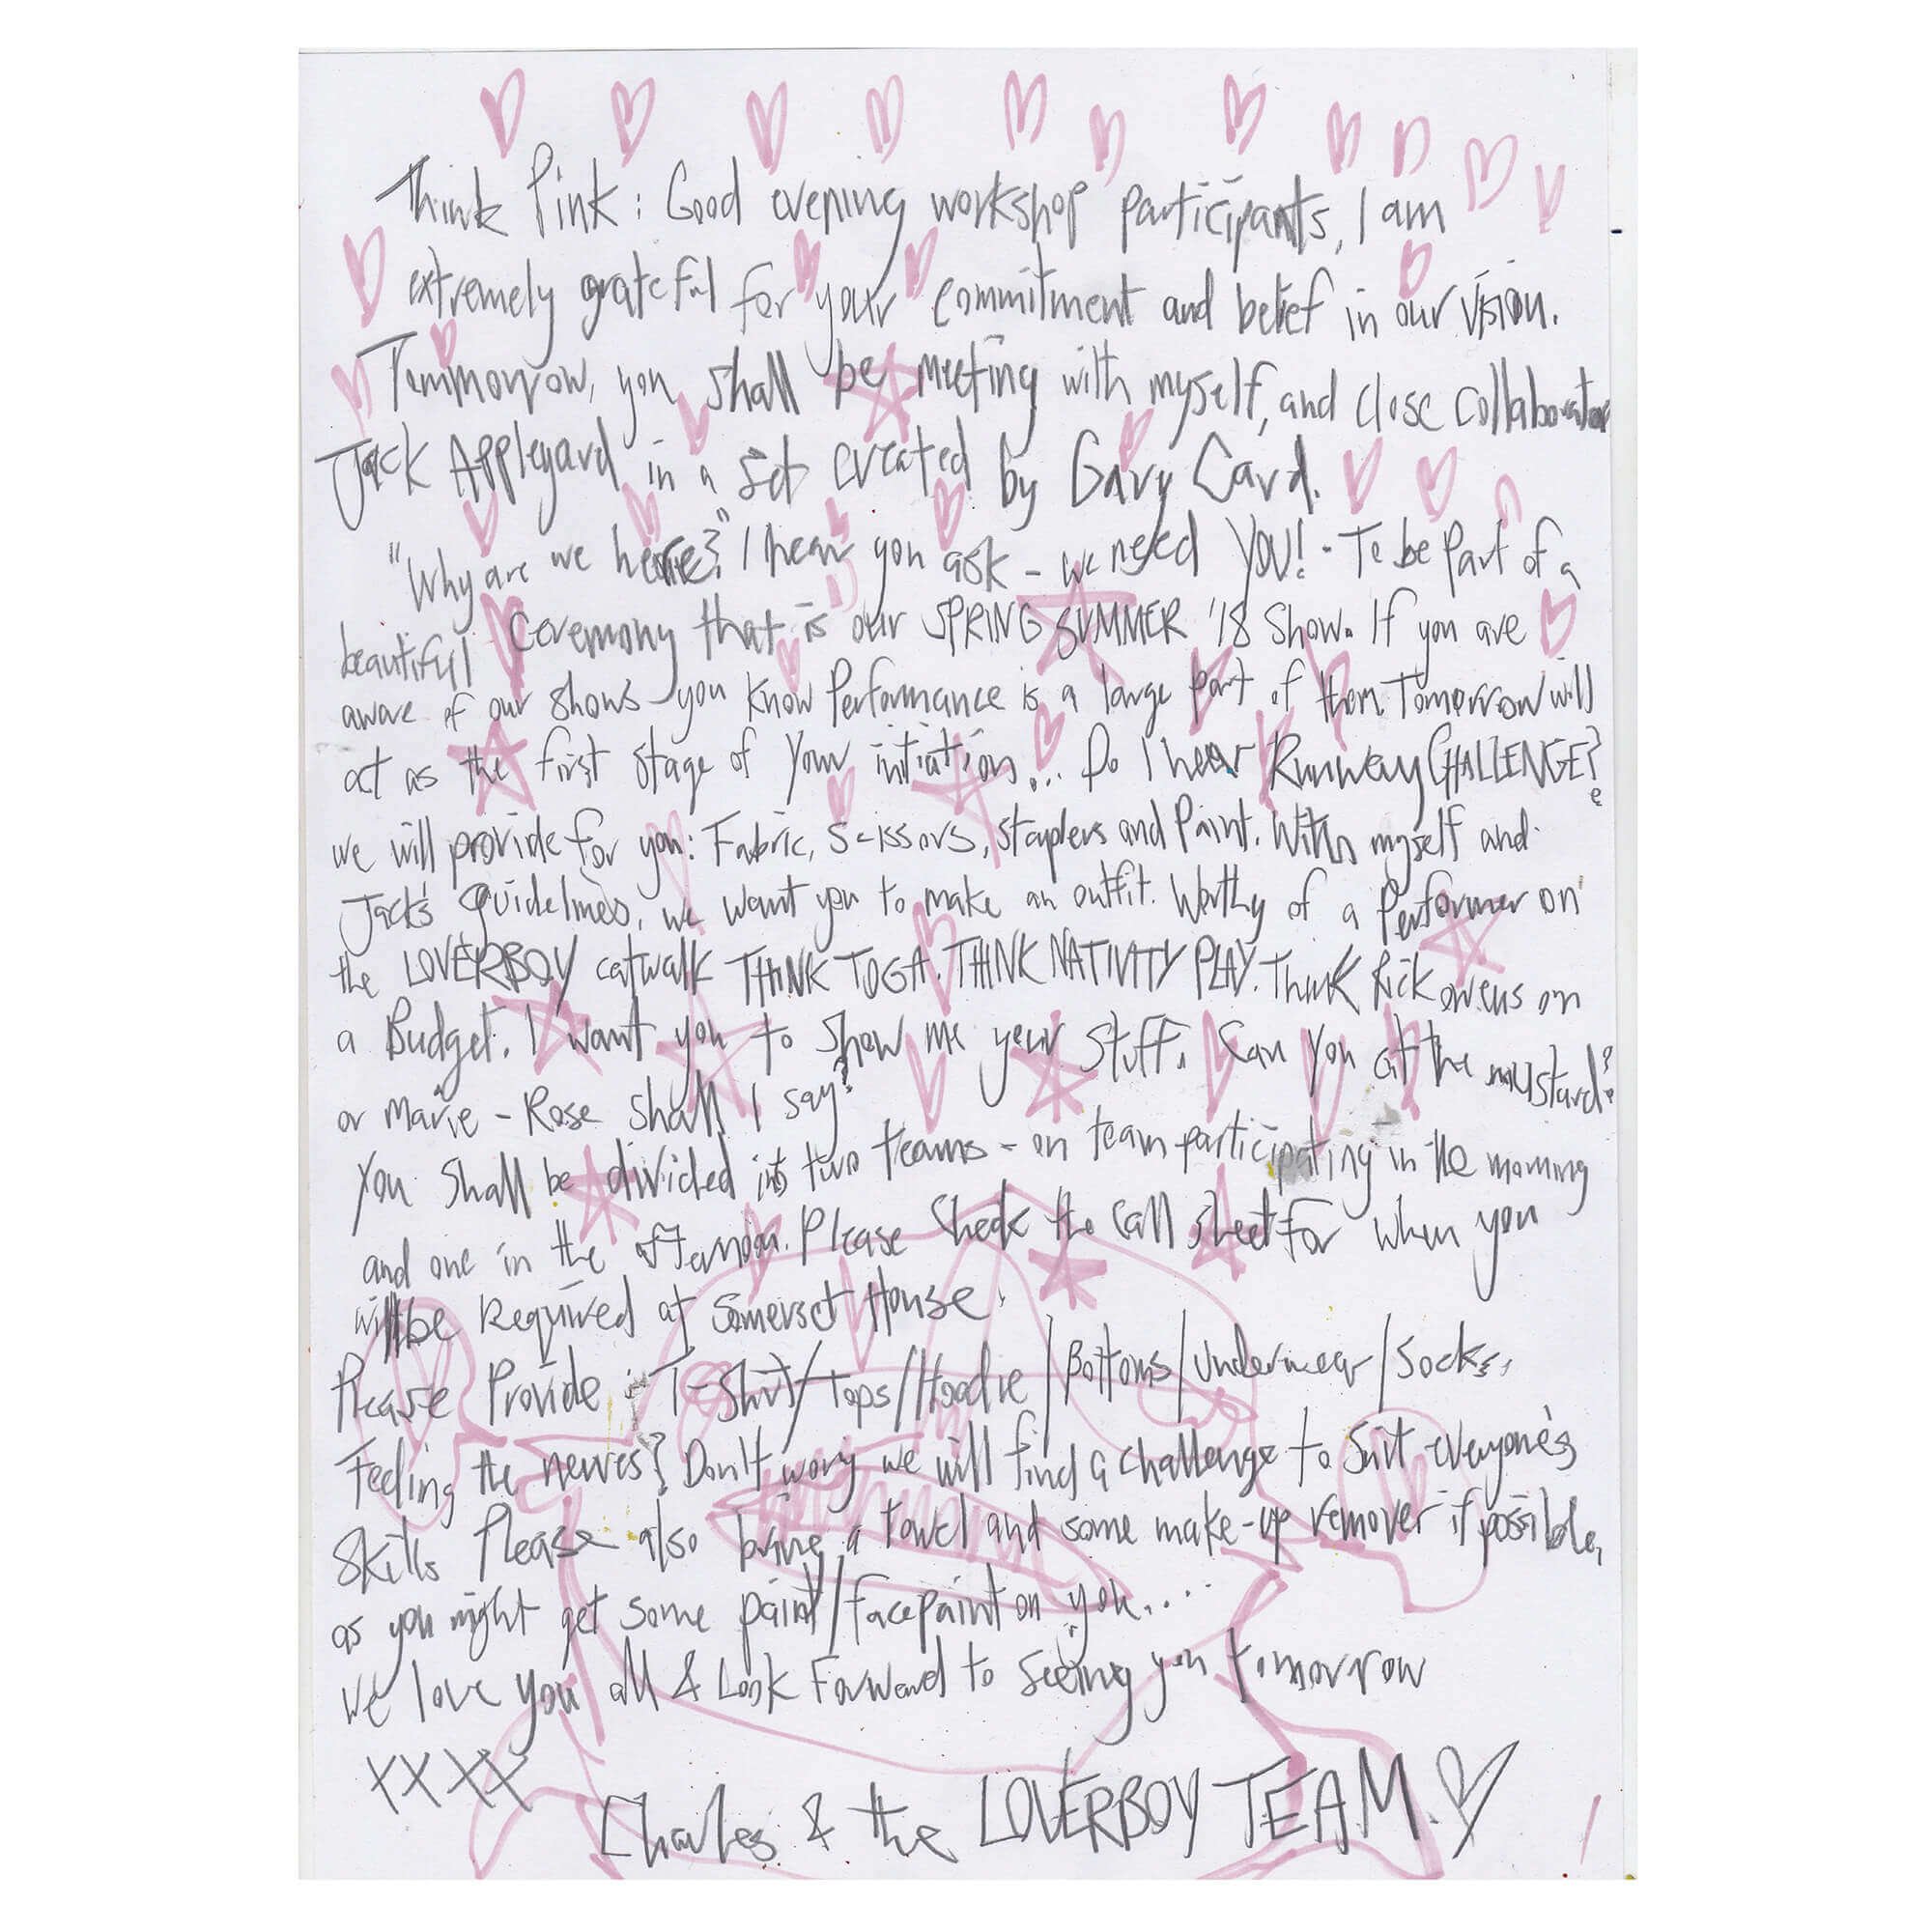 Think Pink: Good evening workshop participants, I am
extremely grateful for your commitment and belief in our vision.
Tommorrow, you shall be meeting with myself, and close collaborator
Jack Appleyard in a set created by Gary Card.
"Why are we here?" I hear you ask - we need YOU! - To be part of a
beautiful ceremony that is our SPRING SUMMER '18 Show. If you are
aware of our shows you know Performance is a large part of them. Tomorrow will
act as the first stage of your initiation... Do I hear Runway CHALLENGE?
we will provide for you: Fabric, Scissors, Staplers and Paint. With myself and
Jack's guidelines, we want you to make an outfit. Worthy of a Performer on
the LOVERBOY catwalk THINK TOGA. THINK NATIVITY PLAY. Think Rick owens on
a Budget. I want you to show me your stuff. Can you cut the mustard?
or Marie - Rose shall I say?
You shall be divided into two teams - on team participating in the morning
and one in the afternoon. Please check the call sheet for when you
will be Required at Somerset House.
Please Provide: T-Shirt/Tops/Hoodie/Bottoms/underwear/Socks,
Feeling the nerves? Don't worry we will find a challenge to suit everyone's
skills Please also bring a towel and some make-up remover if possible,
as you might get some paint/facepaint on you...
We love you all & Look Forward to seeing you tomorrow
XXXX
Charles & the LOVERBOY TEAM.